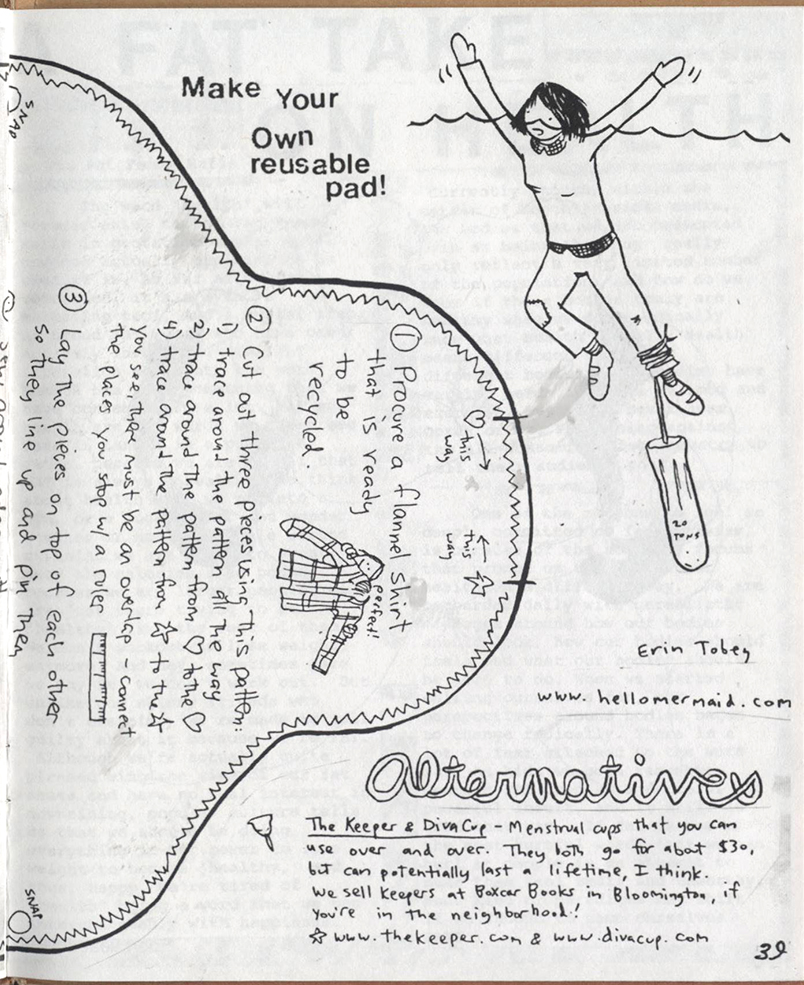 Make Your
Own
reusable
pad!
SNAP
① Procure a flannel shirt
that is ready
to be
recycled.
perfect!
② Cut out three pieces using this pattern
1) trace around the pattern all the way
2) trace around the pattern from ♡ to the ♡
4) trace around the pattern from ☆ to the ☆
you see, there must be an overlap. Connect
the places you stop w/ a ruler
③ Lay the pieces on top of each other
so they line up and pin them
♡ this
way
this
way ☆
SNAP
20
TONS
Erin Tobey
www.hellomermaid.com
Alternatives
The Keeper & DivaCup - Menstrual cups that you can
use over and over. They both go for about $30,
but can potentially last a lifetime, I think.
We sell Keepers at Boxcar Books in Bloomington, if
you're in the neighborhood!
☆ www.thekeeper.com & www.divacup.com
39